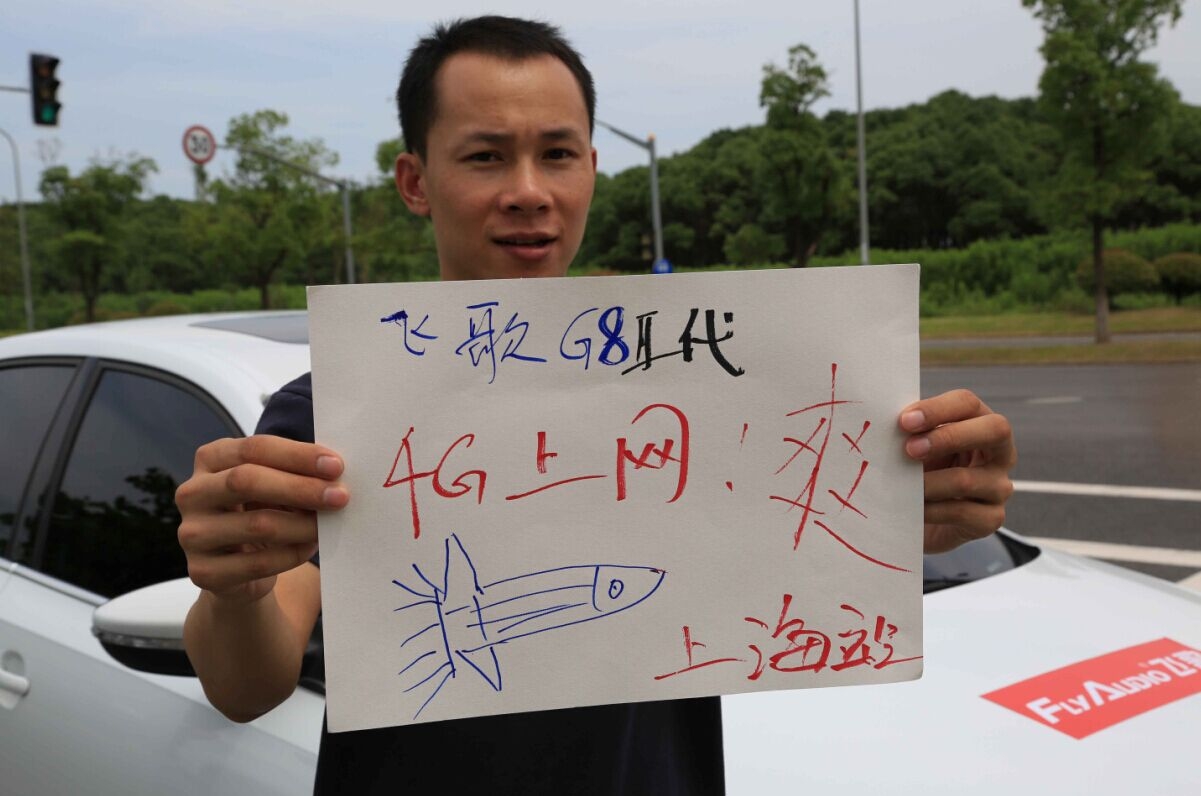 飞歌G8Ⅱ代
4G上网:爽
上海站
30
FLYAUDIO 飞歌